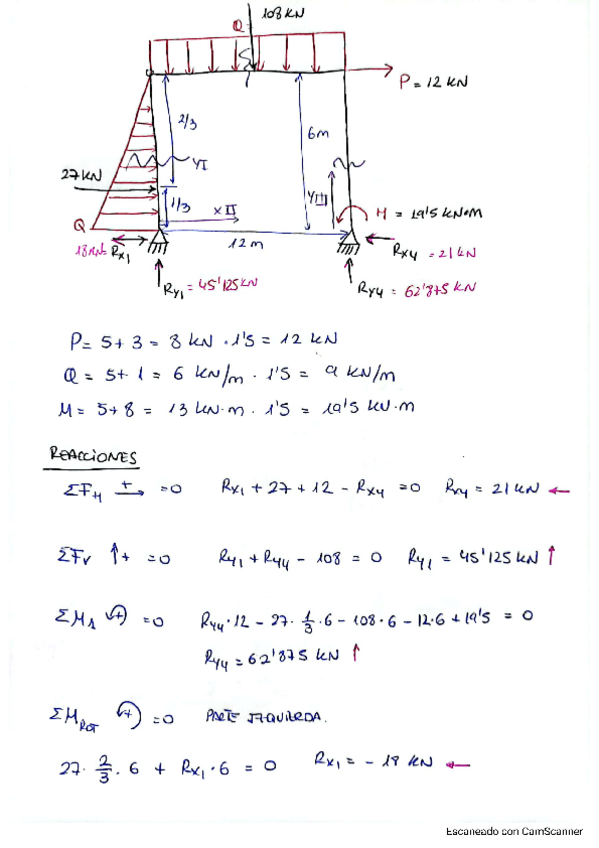 108 KN
Q
P = 12 KN
2/3
6m
YI
27 KN
YIII
1/3
XII
M = 19'5 KN·M
Q
12 m
18KN= Rx1
Rx4 = 21 KN
Ry1 = 45'125 KN
Ry4 = 62'875 KN
P = 5 + 3 = 8 KN · 1'5 = 12 KN
Q = 5 + 1 = 6 KN/m · 1'5 = 9 KN/m
M = 5 + 8 = 13 KN·m · 1'5 = 19'5 KN·m
REACCIONES
ΣFH + → = 0 Rx1 + 27 + 12 - Rx4 = 0 Rx4 = 21 KN ←
ΣFV ↑+ = 0 Ry1 + Ry4 - 108 = 0 Ry1 = 45'125 KN ↑
ΣM1 + = 0 Ry4 · 12 - 27 · 1/3 · 6 - 108 · 6 - 12 · 6 + 19'5 = 0
Ry4 = 62'875 KN ↑
ΣMROT + = 0 PARTE IZQUIERDA.
27 · 2/3 · 6 + Rx1 · 6 = 0 Rx1 = - 18 KN ←
Escaneado con CamScanner